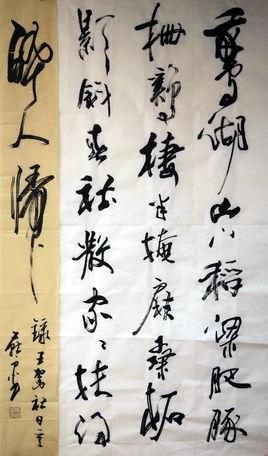 鵞湖山下稻粱肥豚
栅鷄棲半掩扉桑柘
影斜春社散家々扶得
醉人歸
錄王駕社日